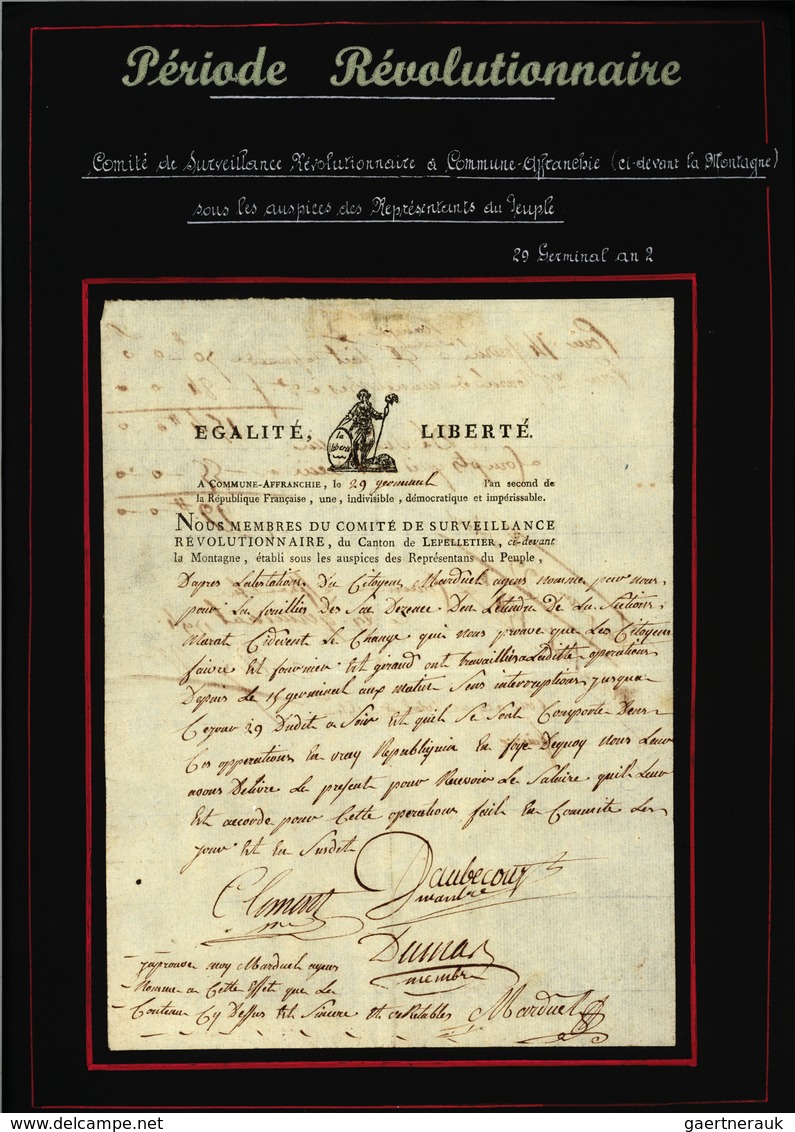 Période Révolutionnaire
Comité de Surveillance Révolutionnaire à Commune-Affranchie (ci-devant la Montagne)
sous les auspices des Représentants du Peuple
29 Germinal an 2
EGALITÉ, LIBERTÉ.
la liberté
A COMMUNE-AFFRANCHIE, le 29 germinal l'an second de
la République Française, une, indivisible, démocratique et impérissable.
NOUS MEMBRES DU COMITÉ DE SURVEILLANCE
RÉVOLUTIONNAIRE, du Canton de LEPELLETIER, ci-devant
la Montagne, établi sous les auspices des Représentans du Peuple,
Dapres Latestations Du Citoyen Marduel agens nomme par nous
pour La fouillis Des Dan Letandu De La Sections
Marat Cidevent Le Change qui nous prouve que Les Citoyens
faivre Est fournier Est giraud ont travaillis a Laditte operations
Depuis Le 15 germinal aux matin Sens interruptions jusqua
Cejour 29 Dudit a Soir Est quil Se Sont Comporte Dens
Ces opperations En vray Republiquin En foye Dequoy nous Leur
avons Delivre Le present pour Recevoir Le Salaire quil Leur
Est accorde pour Cette operations fait En Committe Les
jour Est En Susdit
Daubecourt
Clement
membre
Dumas
membre
japrouve moy Marduel agens
Nomme a Cette Effet que Le
Contenu Cy Dessus Est Sincere Et
Marduel
gaertnerauk / delcampe.net